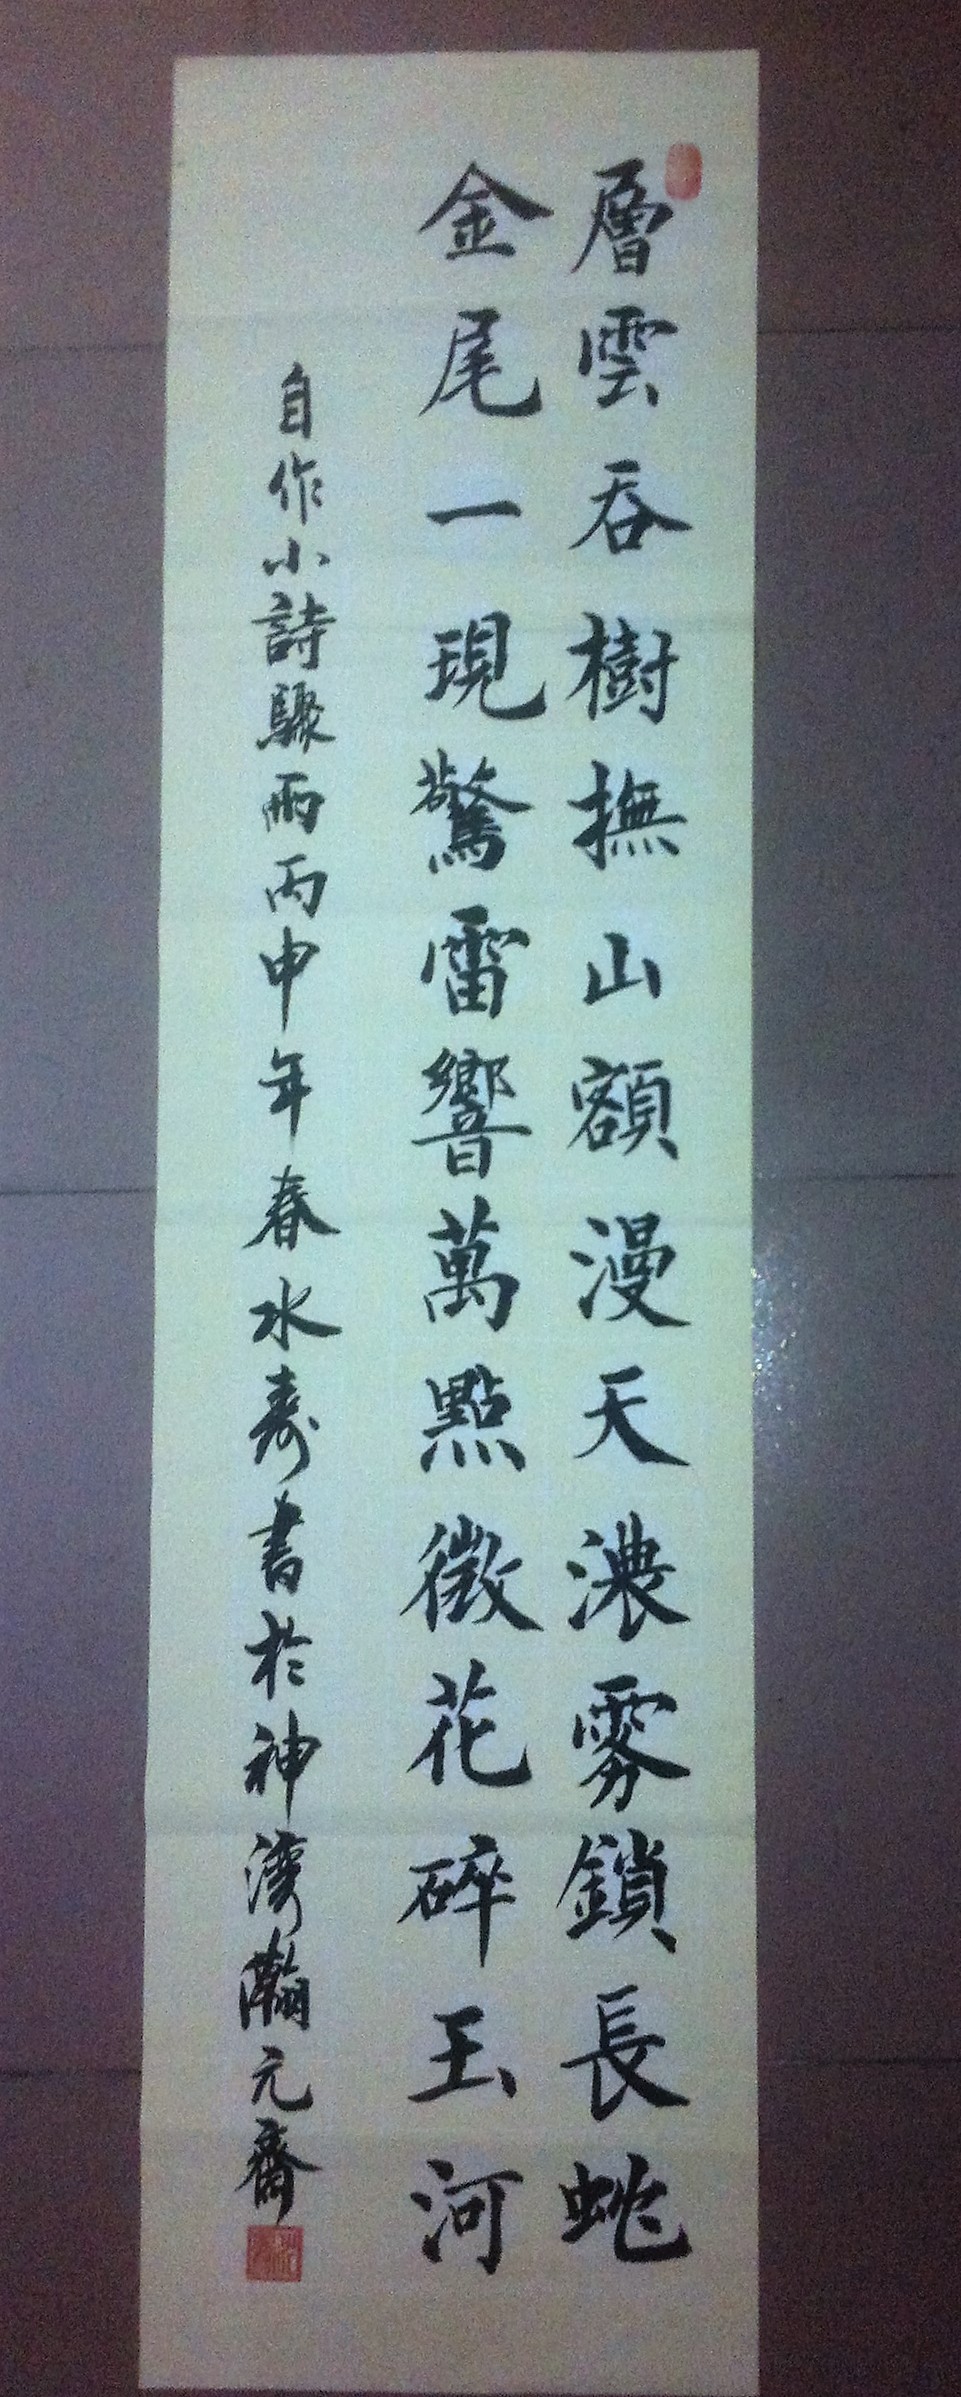 層雲吞樹撫山額漫天濃雾鎖長虵
金尾一現驚雷響萬點微花碎玉河
自作小詩驟雨丙申年春水寿書於神湾瀚元齋